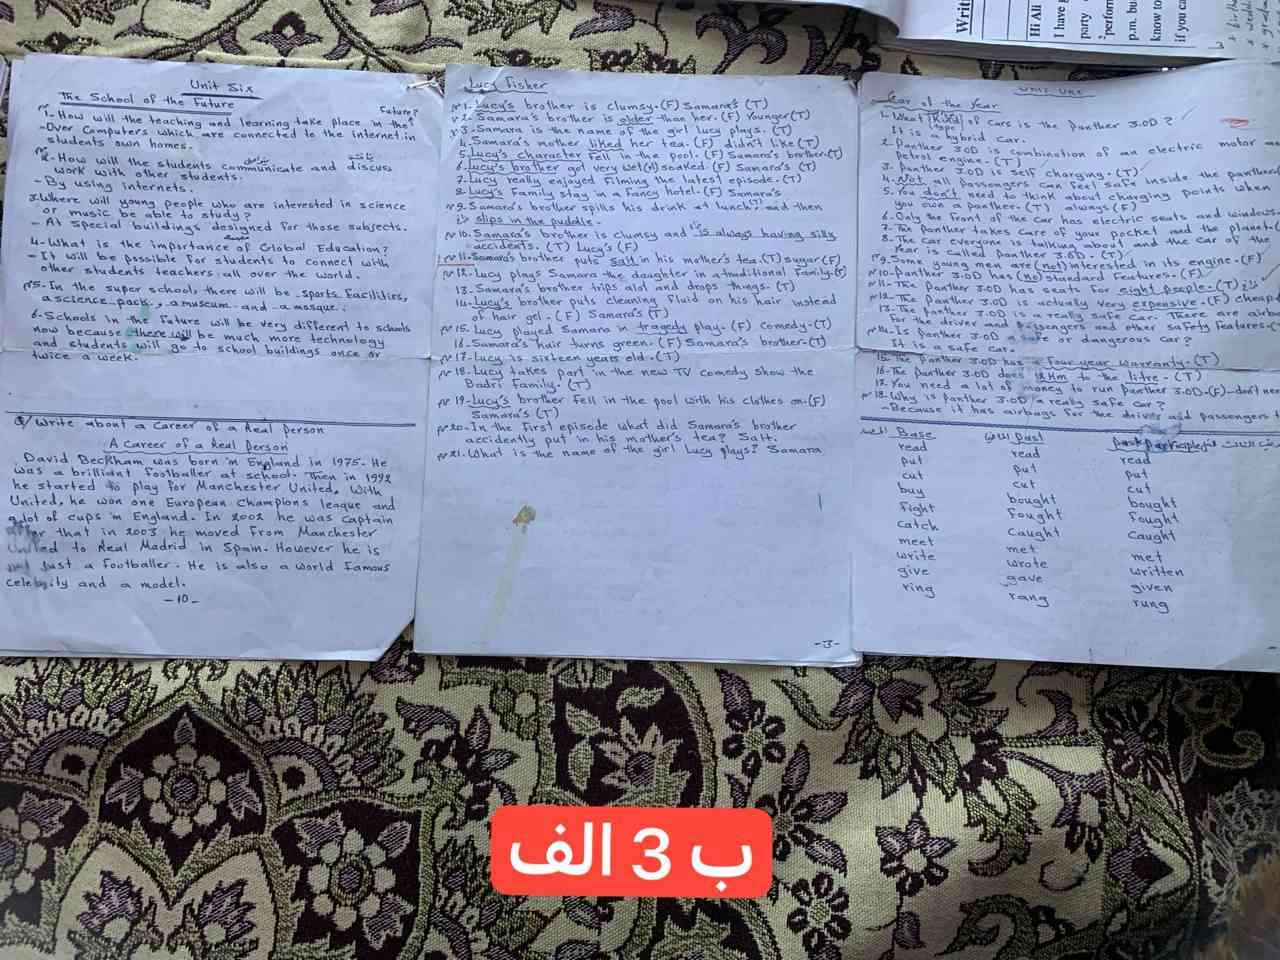 Unit Six
The School of the Future
1-How will the teaching and learning take place in the Future?
-Over Computers which are connected to the internet in
students own homes.
2-How will the students communicate and discuss
work with other students.
-By using internets.
3.Where will young people who are interested in science
or music be able to study?
-At Special buildings designed for those subjects.
4-What is the importance of Global Education?
-It will be possible for students to connect with
other students teachers all over the world.
5-In the super school, there will be sports facilities,
a science park, a museum and a mosque.
6-Schools in the future will be very different to schools
now because there will be much more technology
and students will go to school buildings once or
twice a week.
Q/ Write about a Career of a Real person
A Career of a Real person
David Beckham was born in England in 1975. He
was a brilliant footballer at school. Then in 1992
he started to play for Manchester United. With
United, he won one European Champions league and
a lot of cups in England. In 2002 he was captain
that in 2003 he moved from Manchester
United to Real Madrid in Spain. However he is
not Just a footballer. He is also a world famous
celebrity and a model.
-10-
Lucy Fisher
1-Lucy's brother is clumsy.(F) Samara's (T)
2-Samara's brother is older than her.(F) Younger(T)
3-Samara is the name of the girl lucy plays.(T)
4.Samara's mother liked her tea.(F) didn't like(T)
5.Lucy's character fell in the pool.(F) Samara's brother.(T)
6.Lucy's brother got very wet soaked (F) Samara's (T)
7.Lucy really enjoyed filming the latest episode.(T)
8.Lucy's Family stay in a fancy hotel.(F) Samara's
9-Samara's brother spills his drink at lunch and then
slips in the puddle.
10-Samara's brother is clumsy and is always having silly
accidents. (T) Lucy's (F)
11-Samara's brother puts salt in his mother's tea.(T) sugar(F)
12-Lucy plays Samara the daughter in a traditional Family.(T)
13-Samara's brother trips alot and drops things.(T)
14-Lucy's brother puts cleaning fluid on his hair instead
of hair gel.(F) Samara's (T)
15-Lucy played Samara in tragedy play.(F) Comedy.(T)
16-Samara's hair turns green.(F) Samara's brother.(T)
17-Lucy is sixteen years old.(T)
18-Lucy takes part in the new TV comedy show the
Badri Family.(T)
19-Lucy's brother fell in the pool with his clothes on.(F)
Samara's (T)
20-In the first episode what did Samara's brother
accidently put in his mother's tea? Salt.
21-What is the name of the girl Lucy plays? Samara
-3-
Unit One
Car of the Year
1-What Kind of Cars is the Panther 3.0D?
type
It is a hybrid Car.
2.Panther 3.0D is combination of an electric motor
Petrol engine.(T)
3.Panther 3.0D is self charging.(T)
4.Not all passengers can feel safe inside the panther
5.You don't need to think about charging points when
you own a panther.(T) always (F)
6.Only the front of the car has electric seats and windows
7.The panther takes care of your pocket and the planet.
8.The car everyone is talking about and the Car of the
Year is called Panther 3.0D.(T)
9.Some young men are (not) interested in its engine.(F)
10-Panther 3.0D has (no) standard features.(F)
11.The Panther 3.0D has seats for eight people.(T)
12-The Panther 3.0D is actually very expensive.(F)
13.The Panther 3.0D is a really safe car. There are
for the driver and passengers and other safety features.
14-Is Panther 3.0D a safe or dangerous car?
It is a safe car.
15-The Panther 3.0D has a four year warranty.(T)
16-The Panther 3.0D does 12Km to the litre.(T)
17-You need a lot of money to run panther 3.0D.(F)-don't
18-Why is Panther 3.0D a really safe car?
-Because it has airbags for the driver and passengers
Base Past Past Participle
read read read
put put put
cut cut cut
buy bought bought
fight fought fought
catch caught caught
meet met met
write wrote written
give gave given
ring rang rung
Hi Ali
I have
party
perform
p.m. bu
know to
if you ca
ب 3 الف